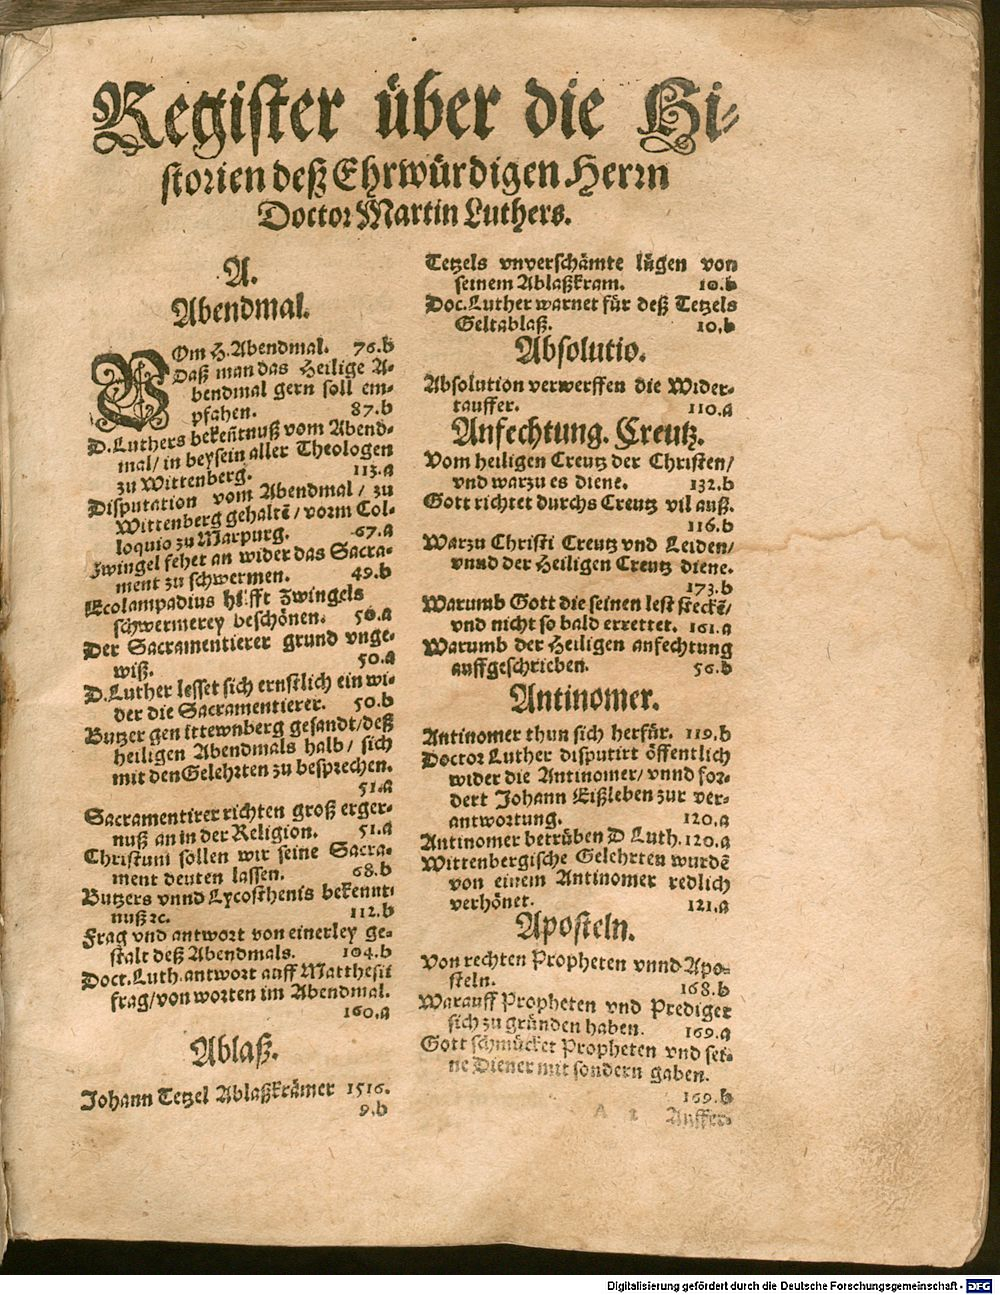 Register über die Hi-
storien deß Ehrwürdigen Herrn
Doctor Martin Luthers.
A.
Abendmal.
VOm H. Abendmal. 76.b
Daß man das Heilige A-
bendmal gern soll em-
pfahen. 87.b
D. Luthers bekeñtnuß vom Abend-
mal/ in beysein aller Theologen
zu Wittenberg. 113.a
Disputation vom Abendmal / zu
Wittenberg gehaltẽ / vorm Col-
loquio zu Marpurg. 67.a
Zwingel fehet an wider das Sacra-
ment zu schwermen. 49.b
Ecolampadius hilfft Zwingels
schwermerey beschönen. 50.a
Der Sacramentierer grund vnge-
wiß. 50.a
D. Luther lesset sich ernstlich ein wi-
der die Sacramentierer. 50.b
Butzer gen ittewnberg gesandt/deß
heiligen Abendmals halb / sich
mit den Gelehrten zu besprechen.
51.a
Sacramentirer richten groß erger-
nuß an in der Religion. 51.a
Christum sollen wir seine Sacra-
ment deuten lassen. 68.b
Butzers vnnd Lycosthenis bekennt-
nuß ꝛc. 112.b
Frag vnd antwort von einerley ge-
stalt deß Abendmals. 104.b
Doct. Luth. antwort auff Matthesii
frag/von worten im Abendmal.
160.a
Ablaß.
Johann Tetzel Ablaßkrämer 1516.
9.b
Tetzels vnverschämte lügen von
seinem Ablaßkram. 10.b
Doc. Luther warnet für deß Tetzels
Geltablaß. 10.b
Absolutio.
Absolution verwerffen die Wider-
tauffer. 110.a
Anfechtung. Creutz.
Vom heiligen Creutz der Christen/
vnd warzu es diene. 132.b
Gott richtet durchs Creutz vil auß.
116.b
Warzu Christi Creutz vnd Leiden/
vnnd der Heiligen Creutz diene.
173.b
Warumb Gott die seinen lest steckẽ/
vnd nicht so bald errettet. 161.a
Warumb der Heiligen anfechtung
auffgeschrieben. 56.b
Antinomer.
Antinomer thun sich herfür. 119.b
Doctor Luther disputirt öffentlich
wider die Antinomer/ vnnd for-
dert Johann Eißleben zur ver-
antwortung. 120.a
Antinomer betrüben D Luth. 120.a
Wittenbergische Gelehrten wurdẽ
von einem Antinomer redlich
verhönet. 121.a
Aposteln.
Von rechten Propheten vnnd Apo-
steln. 168.b
Warauff Propheten vnd Prediger
sich zu gründen haben. 169.a
Gott schmücket Propheten vnd sei-
ne Diener mit sondern gaben.
169.b
A 2 Aufferd
Digitalisierung gefördert durch die Deutsche Forschungsgemeinschaft - DFG